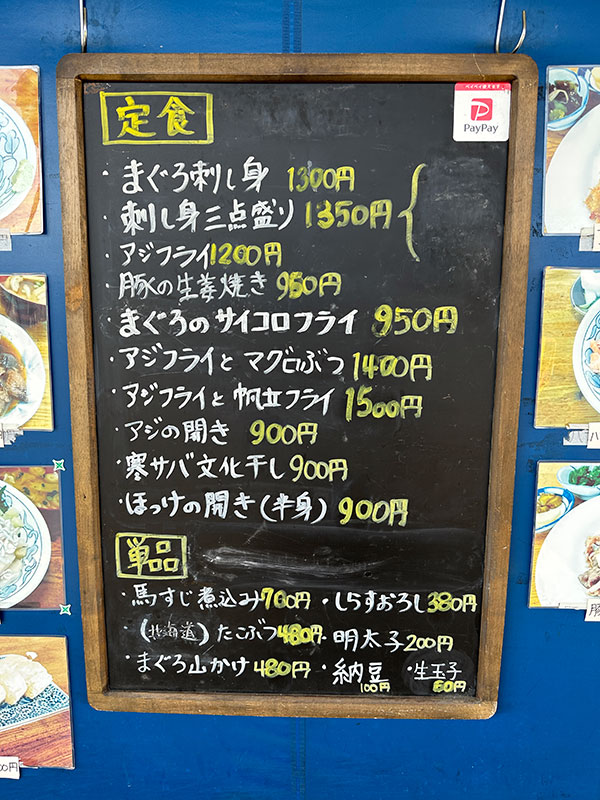 定食
ペイペイ使えます
PayPay
・まぐろ刺し身 1300円
・刺し身三点盛り 1350円
・アジフライ 1200円
・豚の生姜焼き 950円
・まぐろのサイコロフライ 950円
・アジフライと マグロぶつ 1400円
・アジフライと 帆立フライ 1500円
・アジの開き 900円
・寒サバ文化干し 900円
・ほっけの開き(半身) 900円
単品
・馬すじ煮込み 700円 ・しらすおろし 380円
・(北海道)たこぶつ 480円 ・明太子 200円
・まぐろ山かけ 480円 ・納豆 100円 ・生玉子 60円
00円